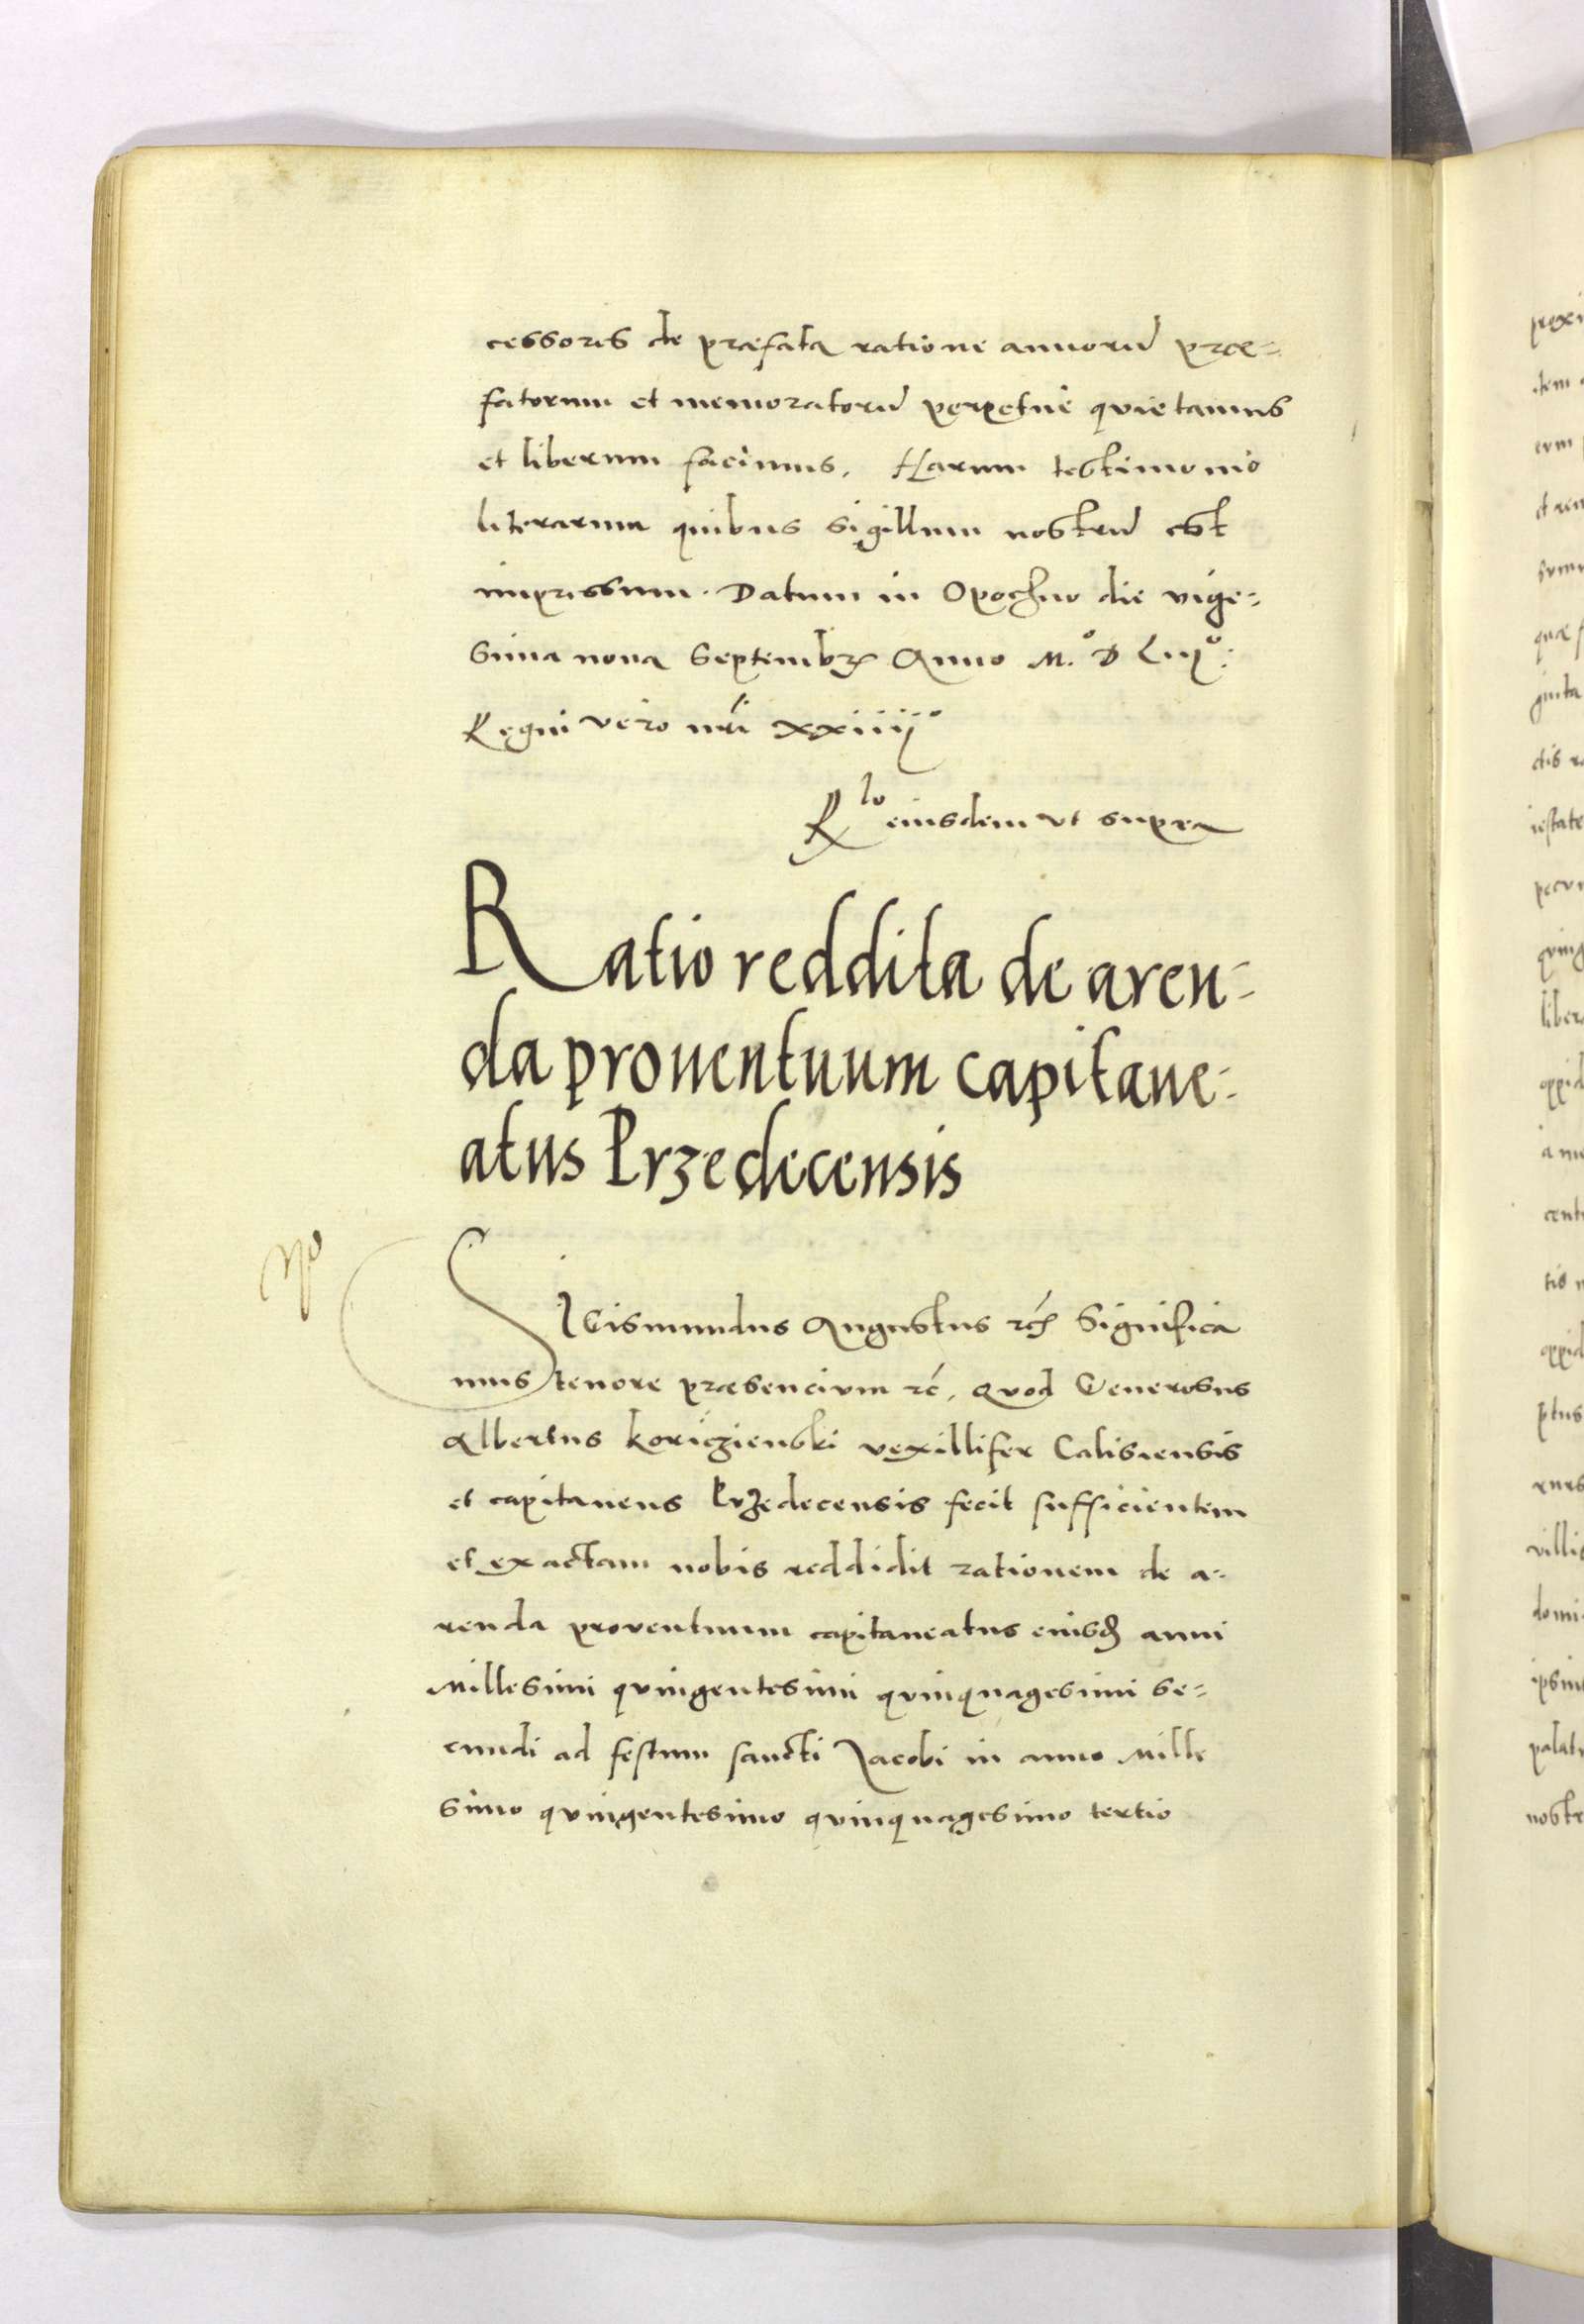 cessores de præfata ratione annorũ præ=
fatorum et memoratorũ perpetue quietamus
et liberum facimus. Harum testimonio
literarum quibus sigillum nostrũ est
impressum. Datum in Opoczno die vige=
sima nona Septembrꝫ Anno M.º D Liijº:
Regni vero nrĩ xxiiijº
Rˡᵒ eiusdem vt supra
Ratio reddita de aren=
da prouentuum capitane=
atus Przedecensis
SIGismundus Augustus ꝛcꝭ Significa
mus tenore præsencium ꝛc̃. Quod Generosus
Albertus Koriczienski vexillifer Calisiensis
et capitaneus Przedecensis fecit sufficientem
et exactam nobis reddidit rationem de a=
renda proventuum capitaneatus eiusdꝫ anni
Millesimi quingentesimi quinquagesimi se=
cundi ad festum sancti Jacobi in anno Mille
simo quingentesimo quinquagesimo tertio